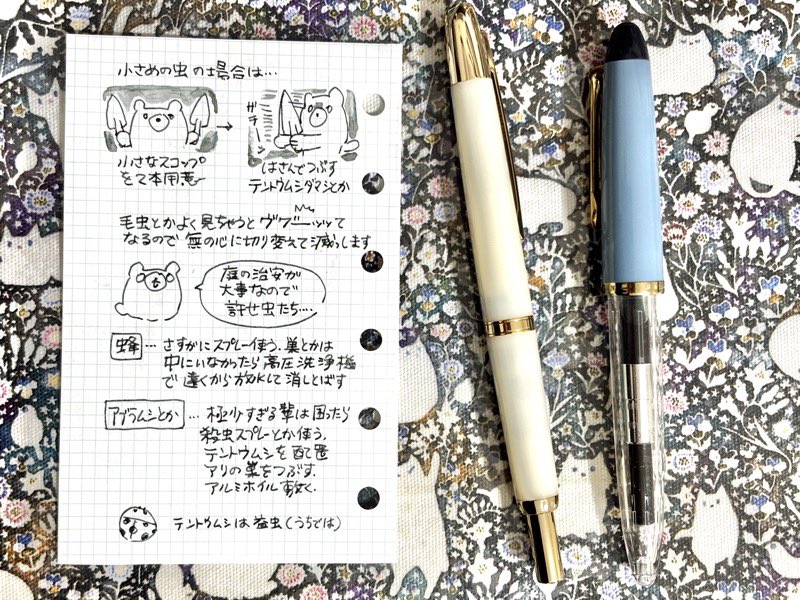 小さめの虫の場合は…
ガチーン
→
小さなスコップ
を2本用意
はさんでつぶす
テントウムシダマシとか
毛虫とかよく見ちゃうとヴグーッッって
なるので無の心に切り変えて減らします
庭の治安が
大事なので
許せ虫たち…
蜂…さすがにスプレー使う。巣とかは
中にいなかったら高圧洗浄機
で遠くから放水して消しとばす
アブラムシとか…極少すぎる輩は困ったら
殺虫スプレーとか使う。
テントウムシを配置
アリの巣をつぶす。
アルミホイル敷く。
テントウムシは益虫(うちでは)